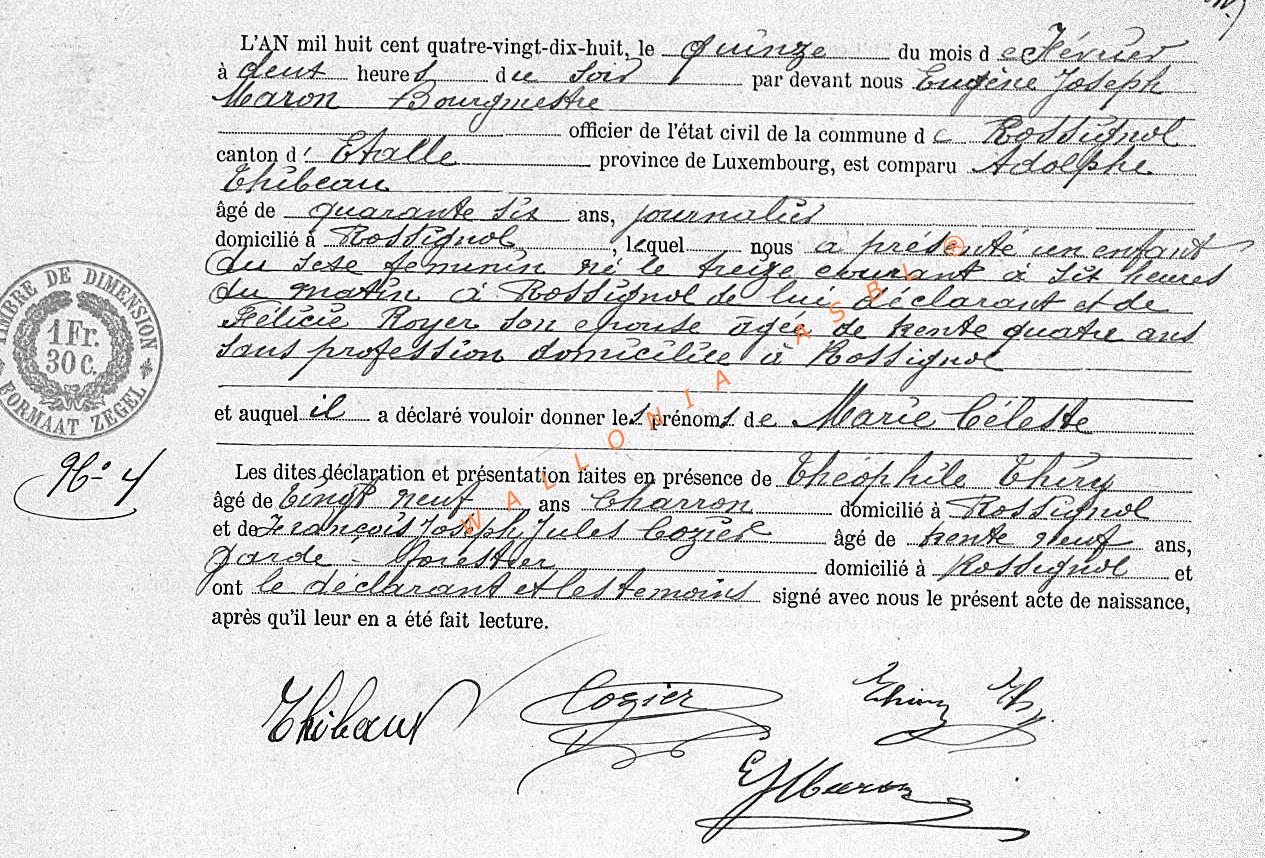 L'AN mil huit cent quatre-vingt-dix-huit, le quinze du mois de Février
à deux heures du soir par devant nous Eugène Joseph
Maron Bourgmestre
officier de l'état civil de la commune de Rossignol
canton d' Etalle province de Luxembourg, est comparu Adolphe
Thibeau
âgé de quarante six ans, journalier
domicilié à Rossignol, lequel nous a présenté un enfant
du sexe feminin né le treize courant à six heures
du matin à Rossignol de lui déclarant et de
Félicie Royer son epouse âgée de trente quatre ans
sans profession domiciliée à Rossignol
et auquel il a déclaré vouloir donner les prénoms de Marie Céleste
Les dites déclaration et présentation faites en présence de Théophile Thiry
âgé de vingt neuf ans Charron domicilié à Rossignol
et de François Joseph Jules Cozier âgé de trente neuf ans,
garde-forestier domicilié à Rossignol et
ont le déclarant et les temoins signé avec nous le présent acte de naissance,
après qu'il leur en a été fait lecture.
TIMBRE DE DIMENSION
1 Fr.
30 C.
FORMAAT ZEGEL
No 4
WALLONIA ASBL ®
Thibaux Cozier Thiry Th.
EJMaron